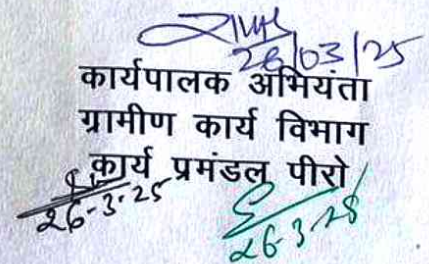 26/03/25
कार्यपालक अभियंता
ग्रामीण कार्य विभाग
कार्य प्रमंडल पीरो
26-3-25
26-3-25